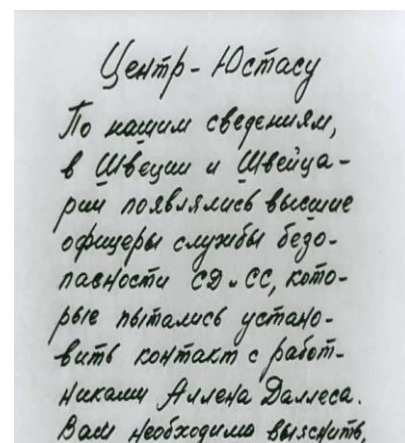 Центр - Юстасу
По нашим сведениям,
в Швеции и Швейца-
рии появлялись высшие
офицеры службы безо-
пасности СД и СС, кото-
рые пытались устано-
вить контакт с работ-
никами Аллена Даллеса.
Вам необходимо выяснить,